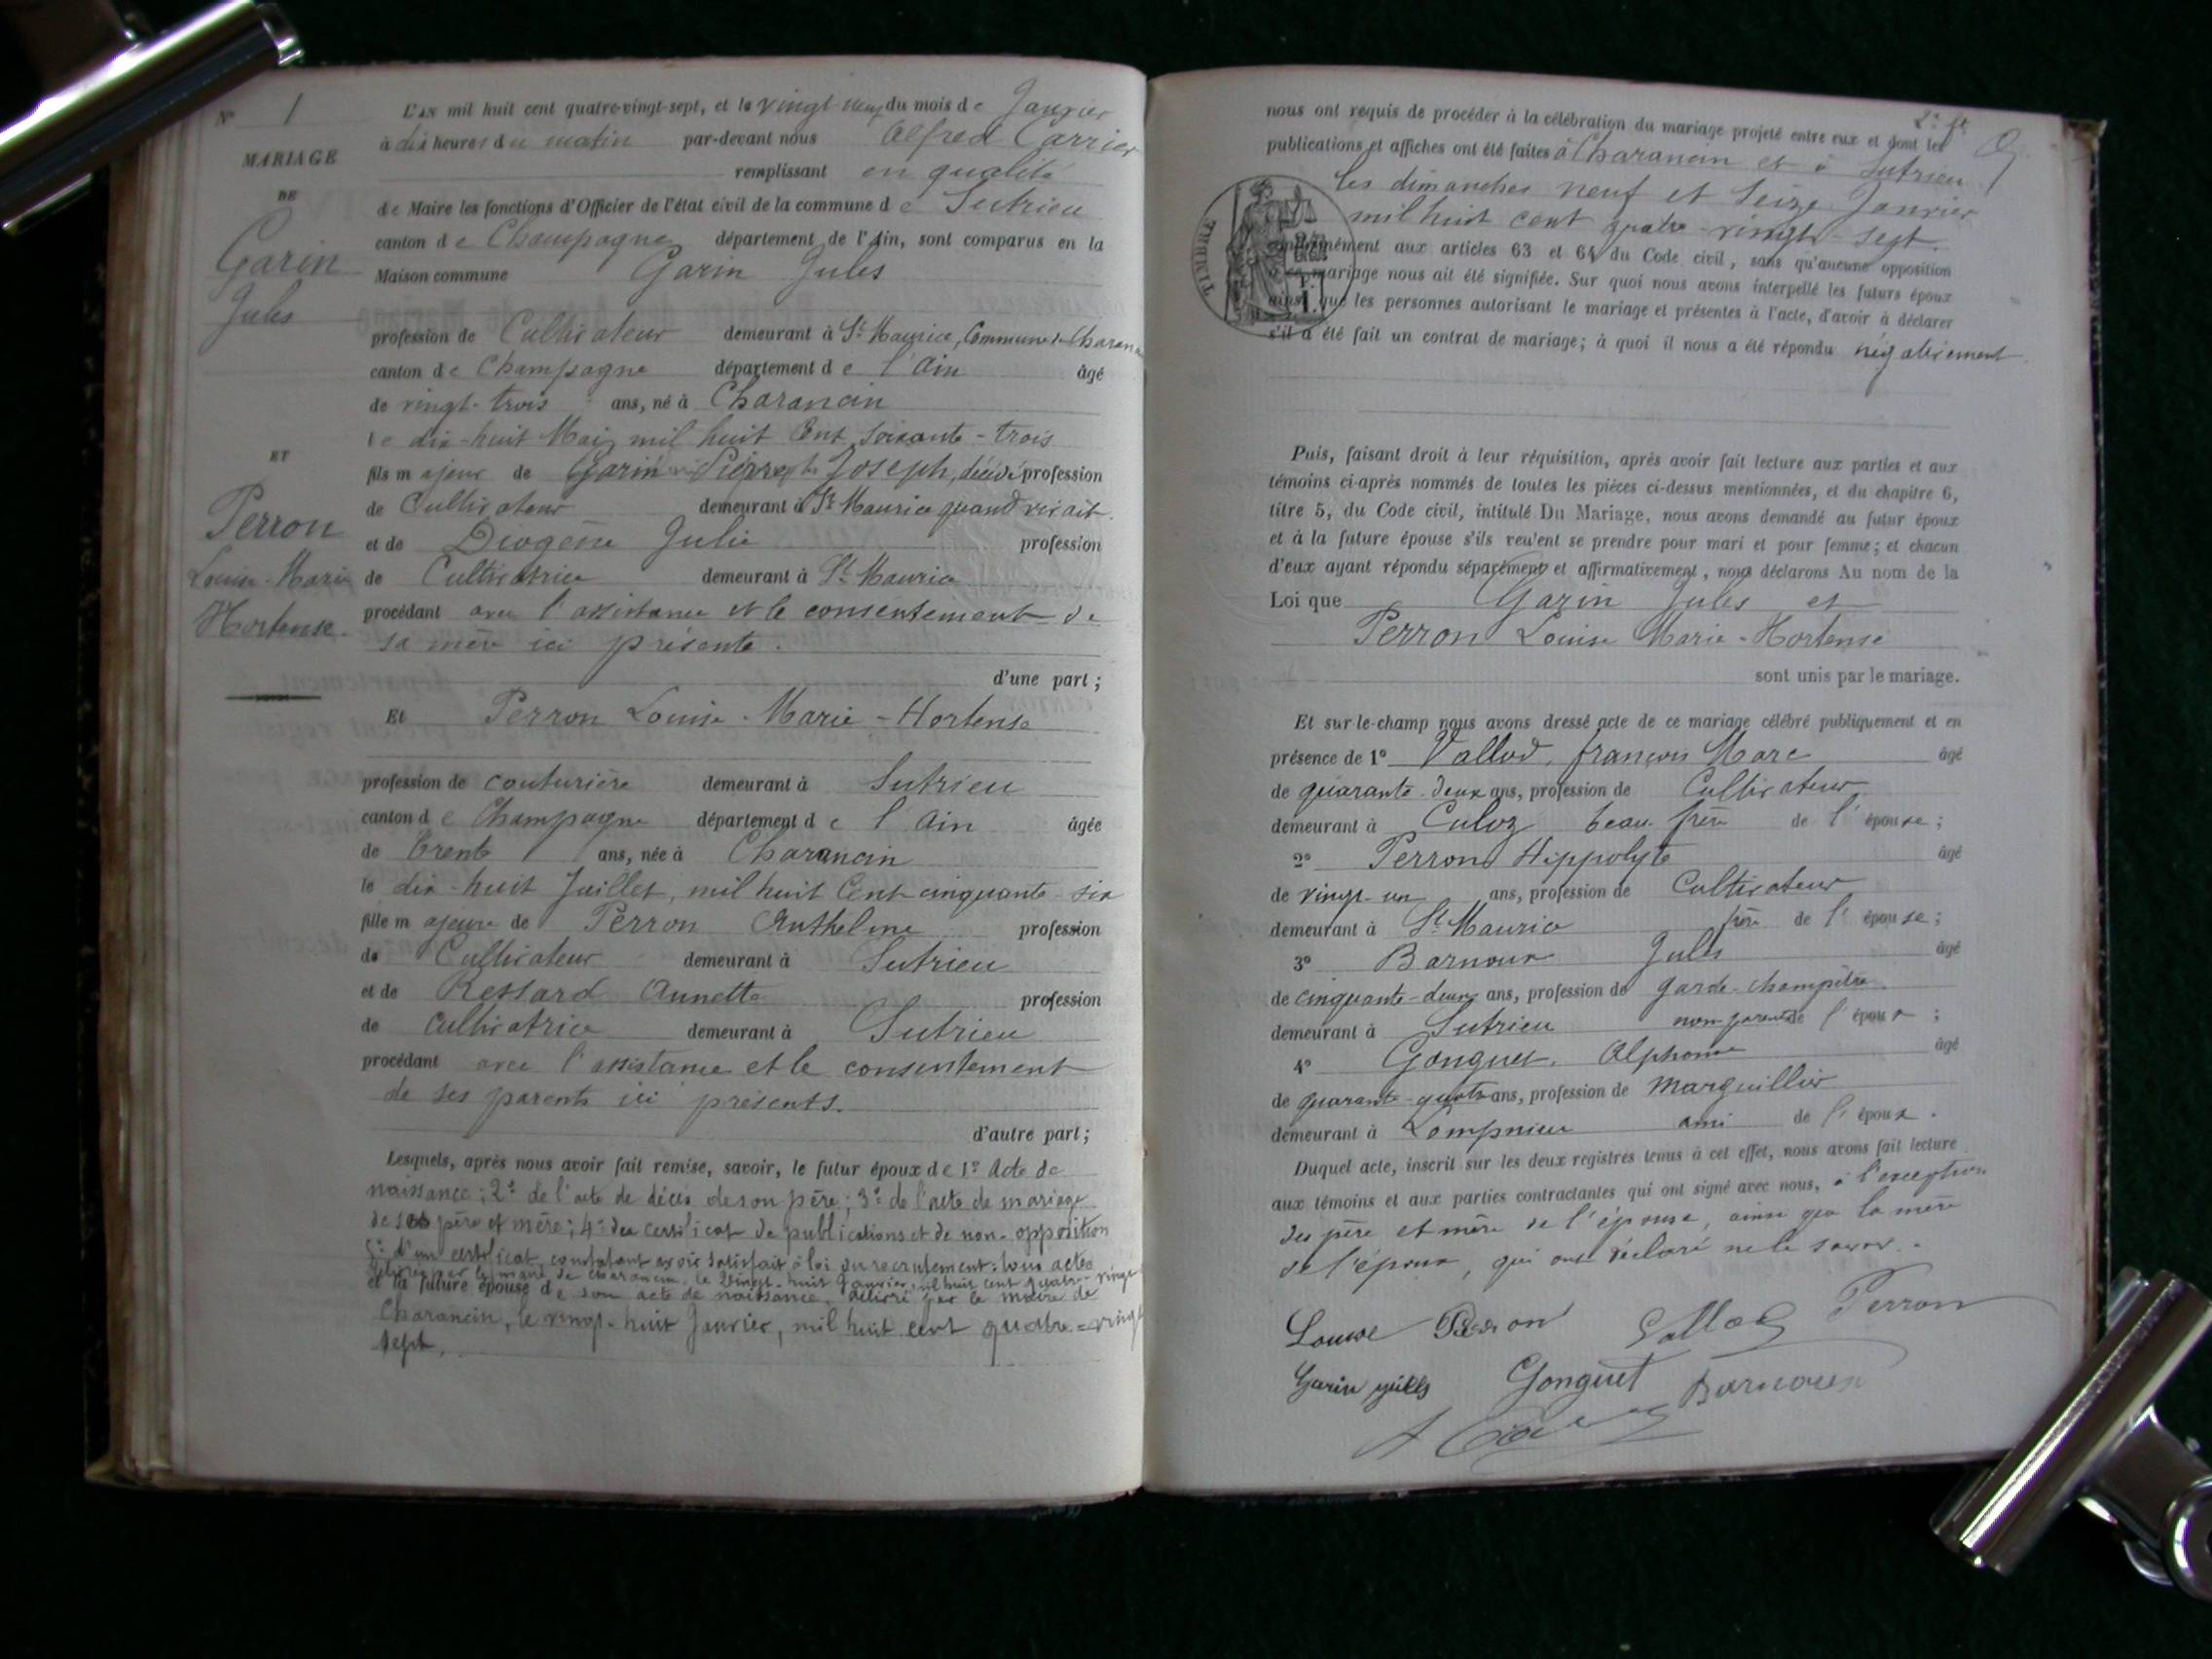 N° 1
MARIAGE
DE
Garin
Jules
ET
Perron
Louise-Marie
Hortense.
L'AN mil huit cent quatre-vingt-sept, et le vingt-neuf du mois de Janvier
à dix heures du matin par-devant nous Alfred Carrier
remplissant en qualité
de Maire les fonctions d'Officier de l'état civil de la commune de Sutrieu
canton de Champagne département de l'Ain, sont comparus en la
Maison commune Garin Jules
profession de Cultivateur demeurant à St Maurice, Commune de Charan
canton de Champagne département de l'Ain âgé
de vingt-trois ans, né à Charancin
le dix-huit Mai, mil huit Cent soixante-trois
fils majeur de Garin Pierre Joseph, décédé profession
de Cultivateur demeurant à St Maurice quand vivait.
et de Diogène Julie profession
de Cultivatrice demeurant à St Maurice
procédant avec l'assistance et le consentement de
sa mère ici présente.
d'une part;
Et Perron Louise-Marie-Hortense
profession de couturière demeurant à Sutrieu
canton de Champagne département de l'Ain âgée
de trente ans, née à Charancin
le dix-huit Juillet, mil huit Cent cinquante-six
fille majeure de Perron Anthelme profession
de Cultivateur demeurant à Sutrieu
et de Ressard Annette profession
de Cultivatrice demeurant à Sutrieu
procédant avec l'assistance et le consentement
de ses parents ici présents.
d'autre part;
Lesquels, après nous avoir fait remise, savoir, le futur époux de 1° Acte de
naissance; 2° de l'acte de décès de son père; 3° de l'acte de mariage
de ses père et mère; 4° du certificat de publications et de non-opposition
5° d'un certificat constatant avoir satisfait à loi du recrutement; tous actes
délivrés par le maire de Charancin, le vingt-huit Janvier, mil huit cent quatre-vingt
et la future épouse de son acte de naissance, délivré par le maire de
Charancin, le vingt-huit Janvier, mil huit cent quatre-vingt
sept.
2e ft
nous ont requis de procéder à la célébration du mariage projeté entre eux et dont les
publications et affiches ont été faites à Charancin et à Sutrieu
les dimanches neuf et seize Janvier
mil huit cent quatre-vingt-sept.
TIMBRE
conformément aux articles 63 et 64 du Code civil, sans qu'aucune opposition
à ce mariage nous ait été signifiée. Sur quoi nous avons interpellé les futurs époux
ainsi que les personnes autorisant le mariage et présentes à l'acte, d'avoir à déclarer
s'il a été fait un contrat de mariage; à quoi il nous a été répondu négativement.
Puis, faisant droit à leur réquisition, après avoir fait lecture aux parties et aux
témoins ci-après nommés de toutes les pièces ci-dessus mentionnées, et du chapitre 6,
titre 5, du Code civil, intitulé Du Mariage, nous avons demandé au futur époux
et à la future épouse s'ils veulent se prendre pour mari et pour femme; et chacun
d'eux ayant répondu séparément et affirmativement, nous déclarons Au nom de la
Loi que Garin Jules et
Perron Louise Marie-Hortense
sont unis par le mariage.
Et sur-le-champ nous avons dressé acte de ce mariage célébré publiquement et en
présence de 1° Vallod, françois Marc âgé
de quarante-deux ans, profession de Cultivateur
demeurant à Culoz beau-frère de l'épouse;
2° Perron Hippolyte âgé
de vingt-un ans, profession de Cultivateur
demeurant à St Maurice frère de l'épouse;
3° Barnoux Jules âgé
de cinquante-deux ans, profession de garde-champêtre
demeurant à Sutrieu non parent de l'époux;
4° Gonguet, Alphonse âgé
de quarante-quatre ans, profession de marguillier
demeurant à Lompnieu ami de l'époux.
Duquel acte, inscrit sur les deux registres tenus à cet effet, nous avons fait lecture
aux témoins et aux parties contractantes qui ont signé avec nous, à l'exception
des père et mère de l'épouse, ainsi que la mère
de l'époux, qui ont déclaré ne le savoir.
Louise Perron Vallod Perron
Garin jules Gonguet Barnoux